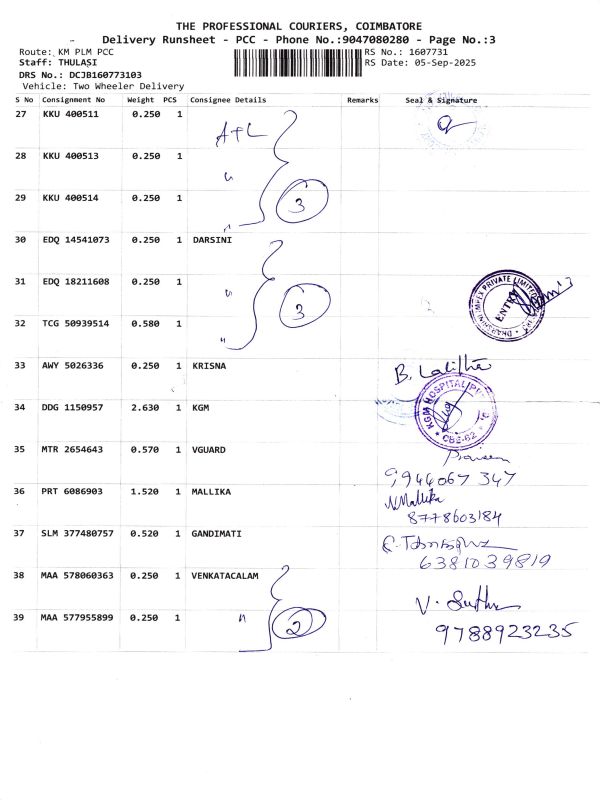 THE PROFESSIONAL COURIERS, COIMBATORE
Delivery Runsheet - PCC - Phone No.:9047080280 - Page No.:3
Route: KM PLM PCC RS No.: 1607731
Staff: THULASI RS Date: 05-Sep-2025
DRS No.: DCJB160773103
Vehicle: Two Wheeler Delivery
S No Consignment No Weight PCS Consignee Details Remarks Seal & Signature
27 KKU 400511 0.250 1 A+L
28 KKU 400513 0.250 1 "
29 KKU 400514 0.250 1 " 3
30 EDQ 14541073 0.250 1 DARSINI
31 EDQ 18211608 0.250 1 " 3 PRIVATE LIMITED ENTRY
32 TCG 50939514 0.580 1 "
33 AWY 5026336 0.250 1 KRISNA B. Lalitha
34 DDG 1150957 2.630 1 KGM KGM HOSPITAL CBE-62
35 MTR 2654643 0.570 1 VGUARD
9944067 347
36 PRT 6086903 1.520 1 MALLIKA N. Mallika
8778603184
37 SLM 377480757 0.520 1 GANDIMATI
6381039819
38 MAA 578060363 0.250 1 VENKATACALAM
39 MAA 577955899 0.250 1 " 2
9788923235